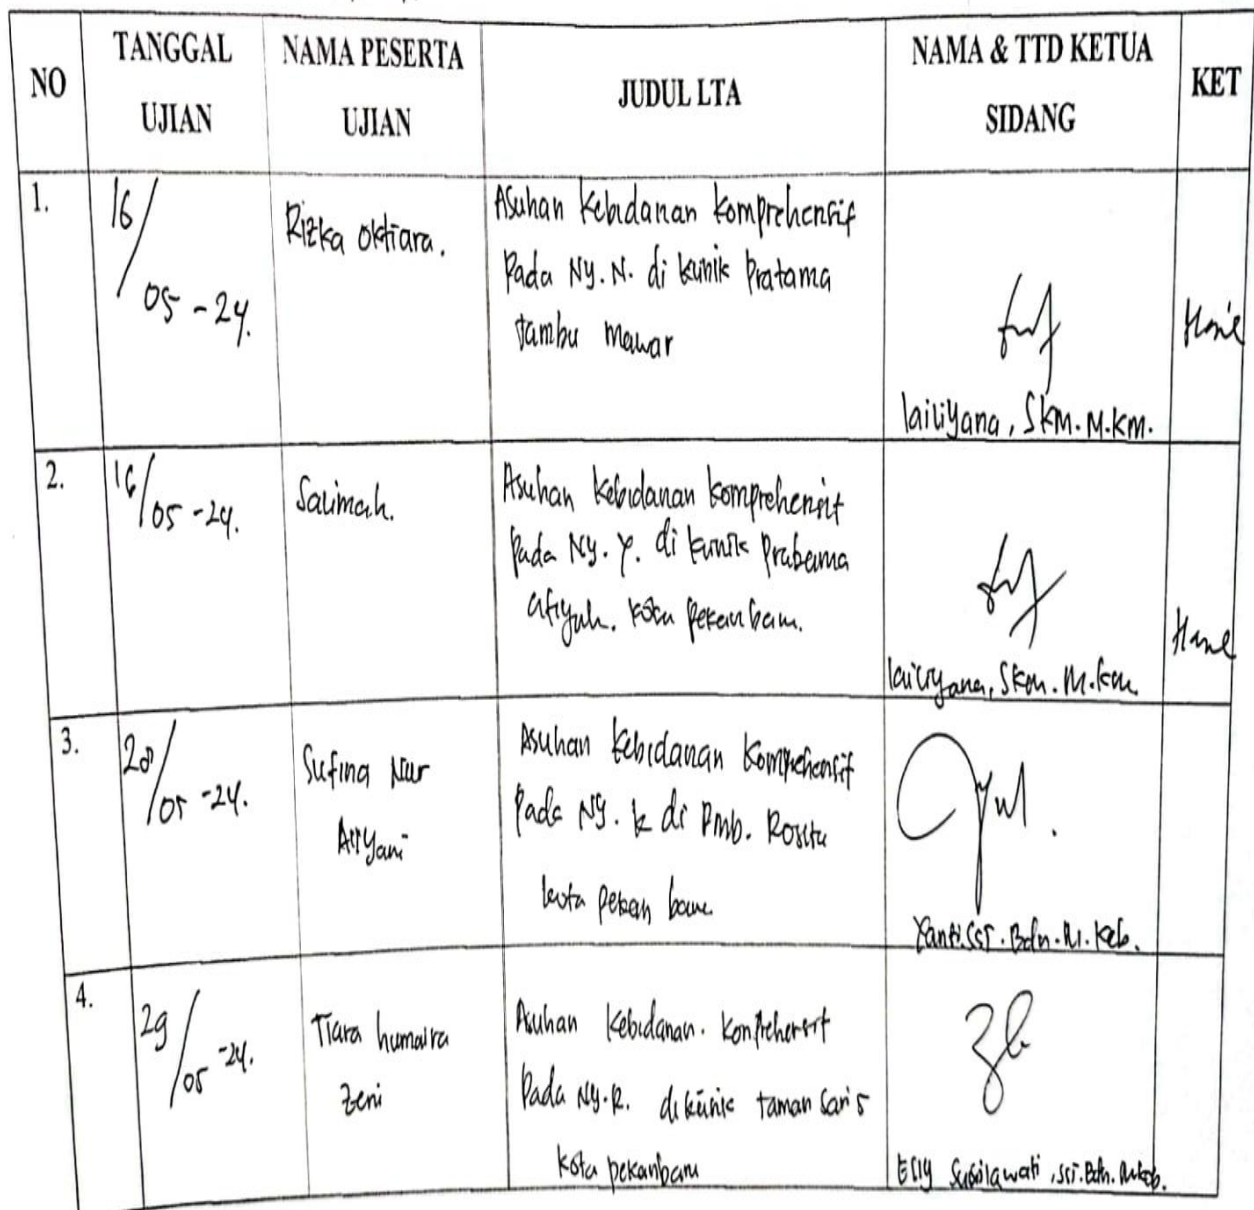 NO
TANGGAL
UJIAN
NAMA PESERTA
UJIAN
JUDUL LTA
NAMA & TTD KETUA
SIDANG
KET
1.
16/05-24.
Rizka Oktiara.
Asuhan Kebidanan Komprehensif
Pada Ny. N. di Klinik Pratama
Jambu Mawar
Lailiyana, SKM. M.KM.
2.
16/05-24.
Salimah.
Asuhan Kebidanan Komprehensif
Pada Ny. Y. di Klinik Pratama
Afiyah. Kota Pekanbaru.
Lailiyana, SKM. M.KM
3.
28/05-24.
Sufina Nur
Aryani
Asuhan Kebidanan Komprehensif
Pada Ny. K di PMB. Rosita
kota pekan baru
Yanti.SST. Bdn. M. Keb.
4.
29/05-24.
Tiara humaira
Zeni
Asuhan Kebidanan. Komprehensif
Pada Ny.R. di klinik taman sari 5
kota pekanbaru
Elly Susilawati, SST. Bdn. M.Keb.